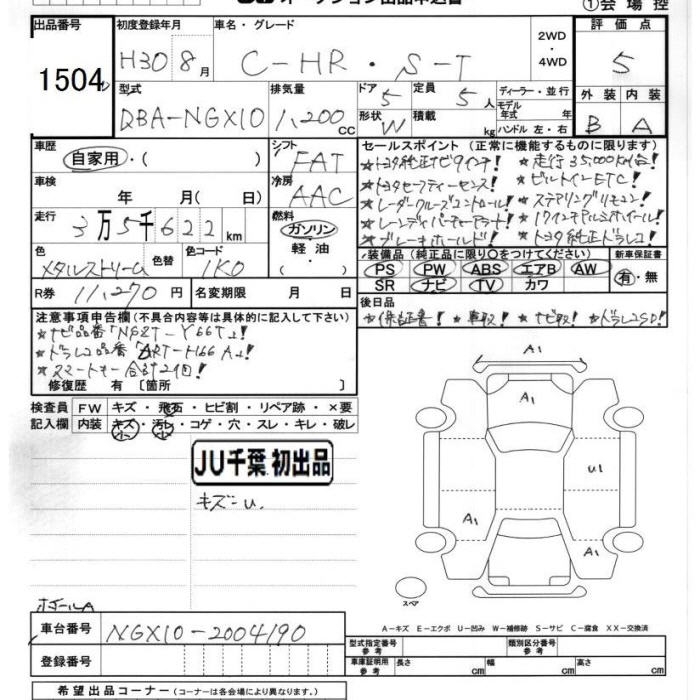 ①会場控
出品番号 初度登録年月 車名・グレード 2WD ・ 4WD 評価点
1504 H30 8月 C-HR・S-T 5
型式 排気量 ドア 定員 ディーラー・並行 外装 内装
DBA-NGX10 1,200cc 5 5人 モデル年式 年式
形状 積載 B A
W kg ハンドル 左・右
車歴 シフト セールスポイント(正常に機能するものに限ります)
自家用・( ) FAT ★トヨタ純正ナビ9インチ! ★走行35,000km台!
車検 冷房 ★トヨタセーフティーセンス! ★ビルトインETC!
年 月( 日) AAC ★レーダークルーズコントロール! ★ステアリングリモコン!
走行 燃料 ★レーンディパーチャーアラート! ★17インチアルミホイール!
3万5千622km ガソリン ★ブレーキホールド! ★トヨタ純正ドラレコ!
色 色替 色コード 軽油・ 装備品(純正品に限り〇をつけてください) 新車保証書
メタルストリーム 1K0 ( ) PS PW ABS エアB AW 有・無
R券 11,270円 名変期限 月 日 SR ナビ TV カワ
注意事項申告欄(不具合内容等は具体的に記入して下さい) 後日品
★ナビ品番「NSZT-Y66T」! ★保証書! ★車取! ★ナビ取! ★ドラレコSD!
★ドラレコ品番「DRT-H66A」!
★スマートキー合計2個!
修復歴 有〔箇所 〕
検査員記入欄 FW キズ・飛石・ヒビ割・リペア跡・×要
内装 キズ・汚レ・コゲ・穴・スレ・キレ・破レ
小 小
JU千葉 初出品
キズ=U.
A1
A1
U1
A1
A1
スペア
ホイールA
A-キズ E-エクボ U-凹み W-補修跡 S-サビ C-腐食 XX-交換済
車台番号 NGX10-2004190
型式指定番号 参考 類別区分番号 参考
登録番号 車庫証明用 参考 長さ cm 幅 cm 高さ cm
希望出品コーナー(コーナーは各会場により異なります。)